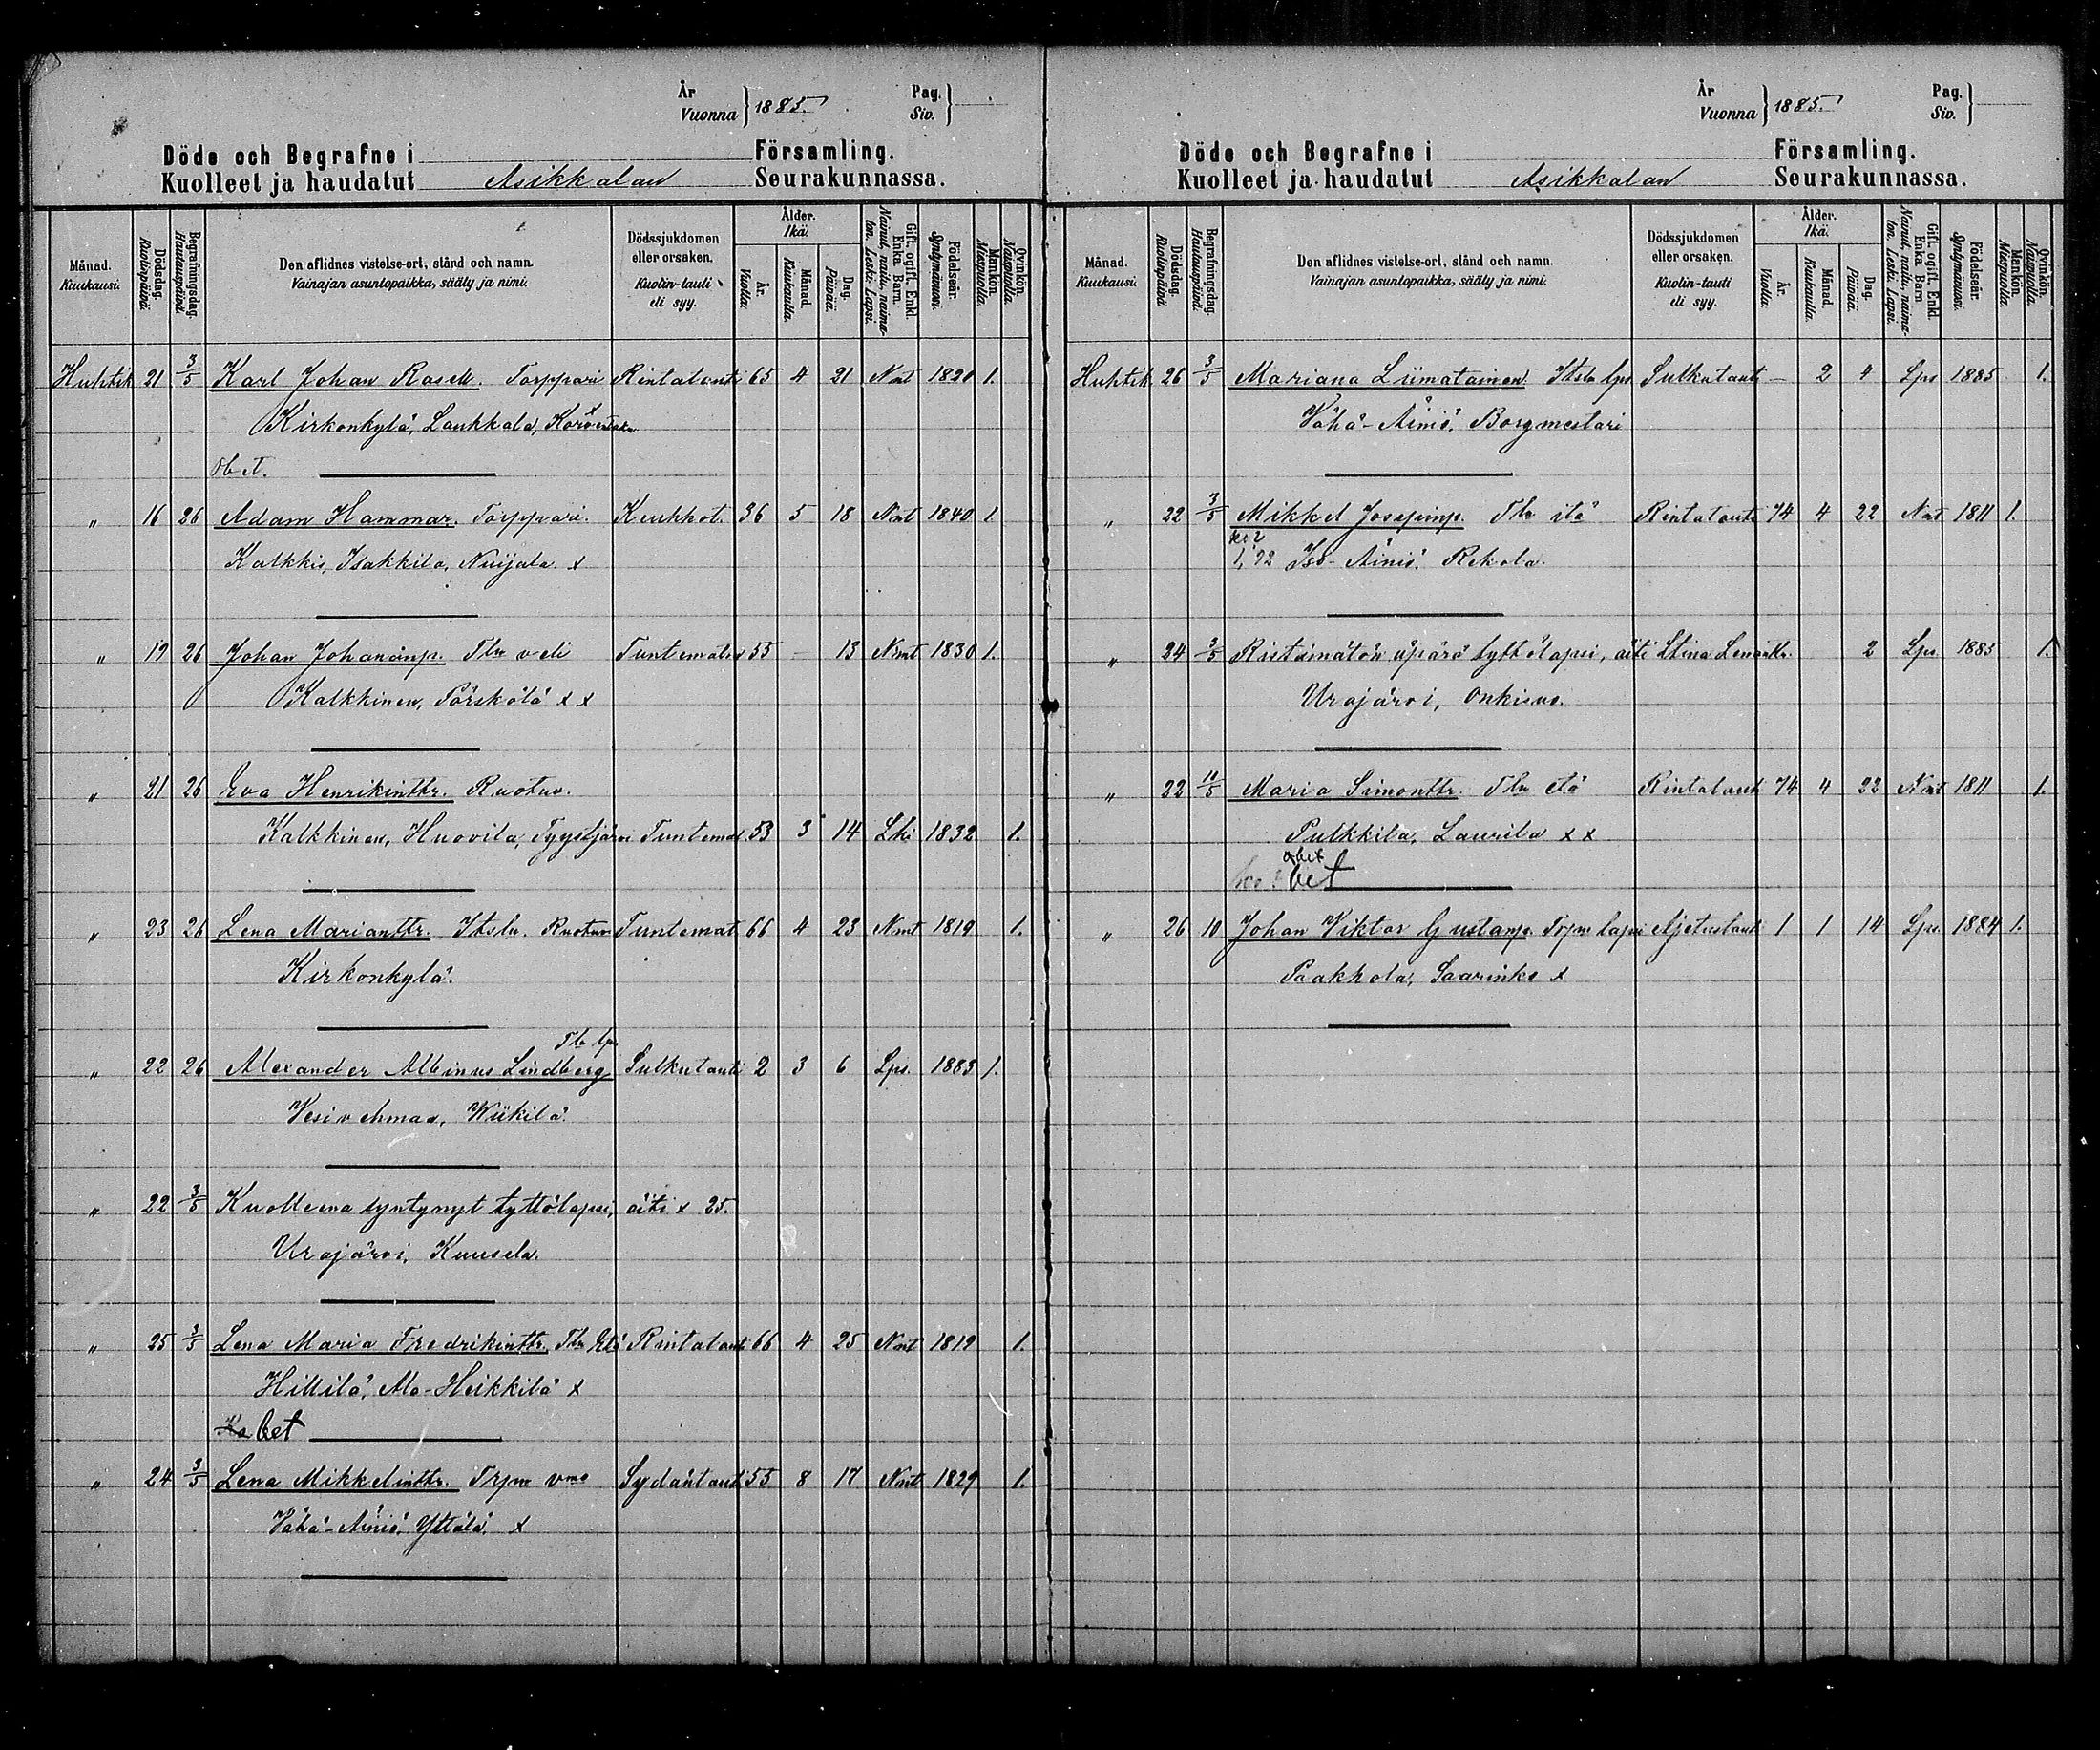 År
Vuonna } 1885.
Pag.
Siv. }
Döde och Begrafne i Församling.
Kuolleet ja haudatut Asikkalan Seurakunnassa.
Månad. Kuukausi.
Dödsdag. Kuolinpäivä.
Begrafningsdag. Hautauspäivä.
Den aflidnes vistelse-ort, stånd och namn. Vainajan asuntopaikka, sääty ja nimi.
Dödssjukdomen eller orsaken. Kuolin-tauti eli syy.
Ålder. Ikä.
År. Vuotta.
Månad. Kuukautta.
Dag. Päivää.
Gift, ogift, Enkl. Enka. Barn. Nainut, naitu, naimaton. Leski. Lapsi.
Födelseår. Syntymävuosi.
Mankön. Miespuolia.
Qvinkön. Naispuolia.
Huhtik 21 3/5 Karl Johan Rasell. Torppari Rintatauti 65 4 21 Nmt 1820 1.
Kirkonkylä, Laukkala,
obet.
" 16 26 Adam Hammar. Torppari. Keuhkot. 36 5 18 Nmt 1840 1.
Kalkkis, Isakkila, Nuijala x
" 19 26 Johan Johananp. Tln veli Tuntematon 55 — 13 Nmt 1830 1.
Kalkkinen, Pörskölä x x
" 21 26 Eva Henrikinttr. Ruotuv.
Kalkkinen, Huovila, Tyystjärvi Tuntemat. 53 3 14 Lki 1832 1.
" 23 26 Lena Marianttr. Itsln. Ruotuv Tuntemat. 66 4 23 Nmt 1819 1.
Kirkonkylä.
Tln lps
" 22 26 Alexander Albinus Lindberg Sulkutauti 2 3 6 Lps. 1883 1.
Vesivehmaa, Wiikilä.
" 22 3/5 Kuolleena syntynyt tyttölapsi, äiti x 25.
Urajärvi, Kuusela.
" 25 3/5 Lena Maria Fredrikinttr. Tln Etä Rintatauti 66 4 25 Nmt 1819 1.
Hillilä, Ala-Heikkilä x
bet
" 24 3/5 Lena Mikkelinttr. Trpn vmo Sydäntauti 55 8 17 Nmt 1829 1.
Vähä-Äiniö, Yttälä. x
År
Vuonna } 1885.
Pag.
Siv. }
Döde och Begrafne i Församling.
Kuolleet ja haudatut Asikkalan Seurakunnassa.
Månad. Kuukausi.
Dödsdag. Kuolinpäivä.
Begrafningsdag. Hautauspäivä.
Den aflidnes vistelse-ort, stånd och namn. Vainajan asuntopaikka, sääty ja nimi.
Dödssjukdomen eller orsaken. Kuolin-tauti eli syy.
Ålder. Ikä.
År. Vuotta.
Månad. Kuukautta.
Dag. Päivää.
Gift, ogift, Enkl. Enka. Barn. Nainut, naitu, naimaton. Leski. Lapsi.
Födelseår. Syntymävuosi.
Mankön. Miespuolia.
Qvinkön. Naispuolia.
Huhtik 26 3/5 Mariana Liimatainen. Itsln lps Sulkutauti — 2 4 Lps 1885 1.
Vähä-Äiniö, Borgmestari
" 22 3/5 Mikkel Josepinp. Tln itä Rintatauti 74 4 22 Nmt 1811 1.
Iso-Äiniö. Rekola.
" 24 3/5 Ristimätön äpärä tyttölapsi, äiti Stina Lenantr. 2 Lps 1885 1.
Urajärvi, Onkisuo.
" 22 10/5 Maria Simonttr. Tln etä Rintatauti 74 4 22 Nmt 1811 1.
Pulkkila, Laurila x x
obet
bet
" 26 10 Johan Viktor Gustanp. Trpn lapsi Ajetustauti 1 1 14 Lps 1884 1.
Paakkola, Saarinko x